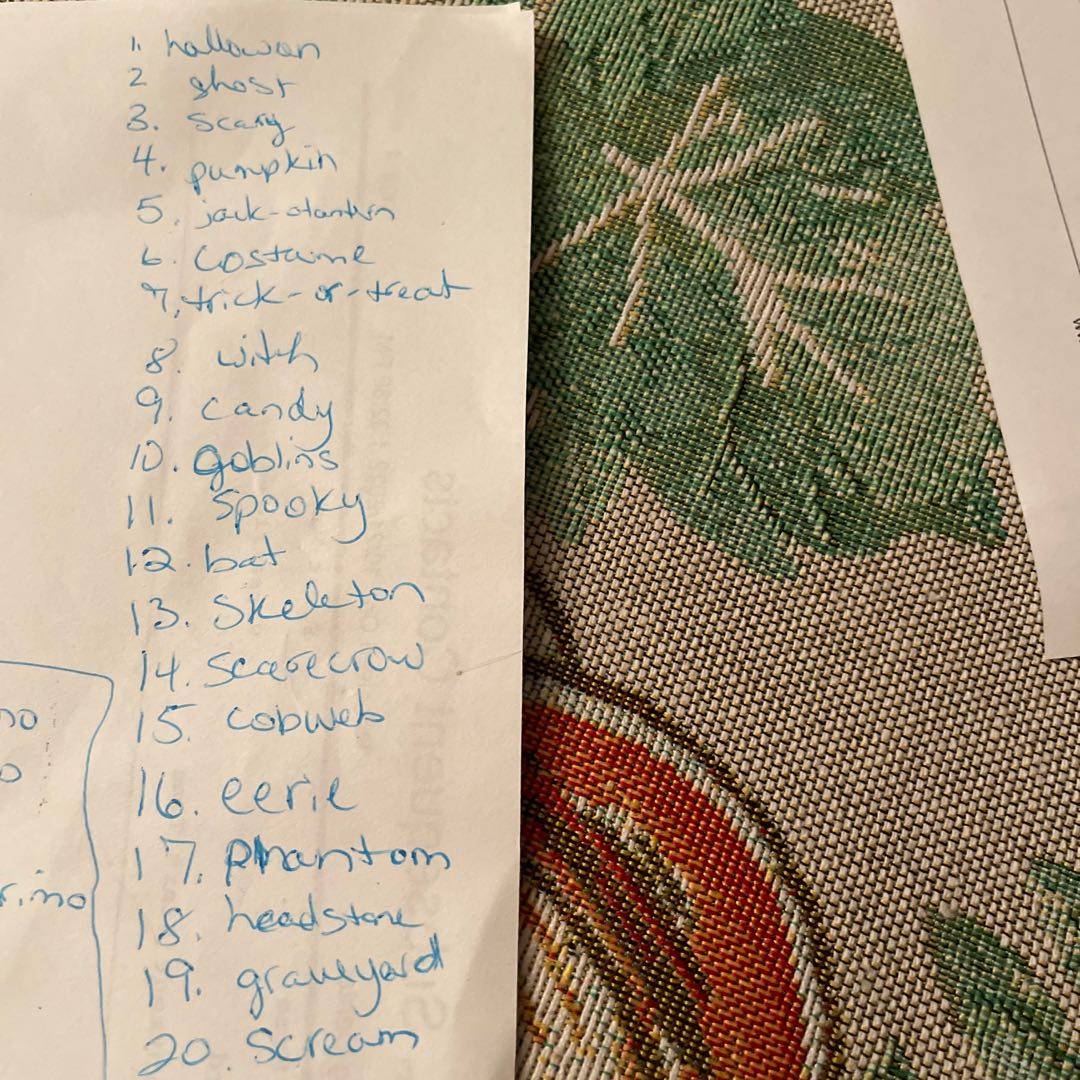 1. hallowan
2 ghost
3. scary
4. pumpkin
5. jack-olantern
6. Costume
7. trick-or-treat
8. witch
9. candy
10. goblins
11. spooky
12. bat
13. Skeleton
14. Scarecrow
15. cobweb
16. eerie
17. phantom
18. headstone
19. graveyard
20 Scream
no
o
r.mo